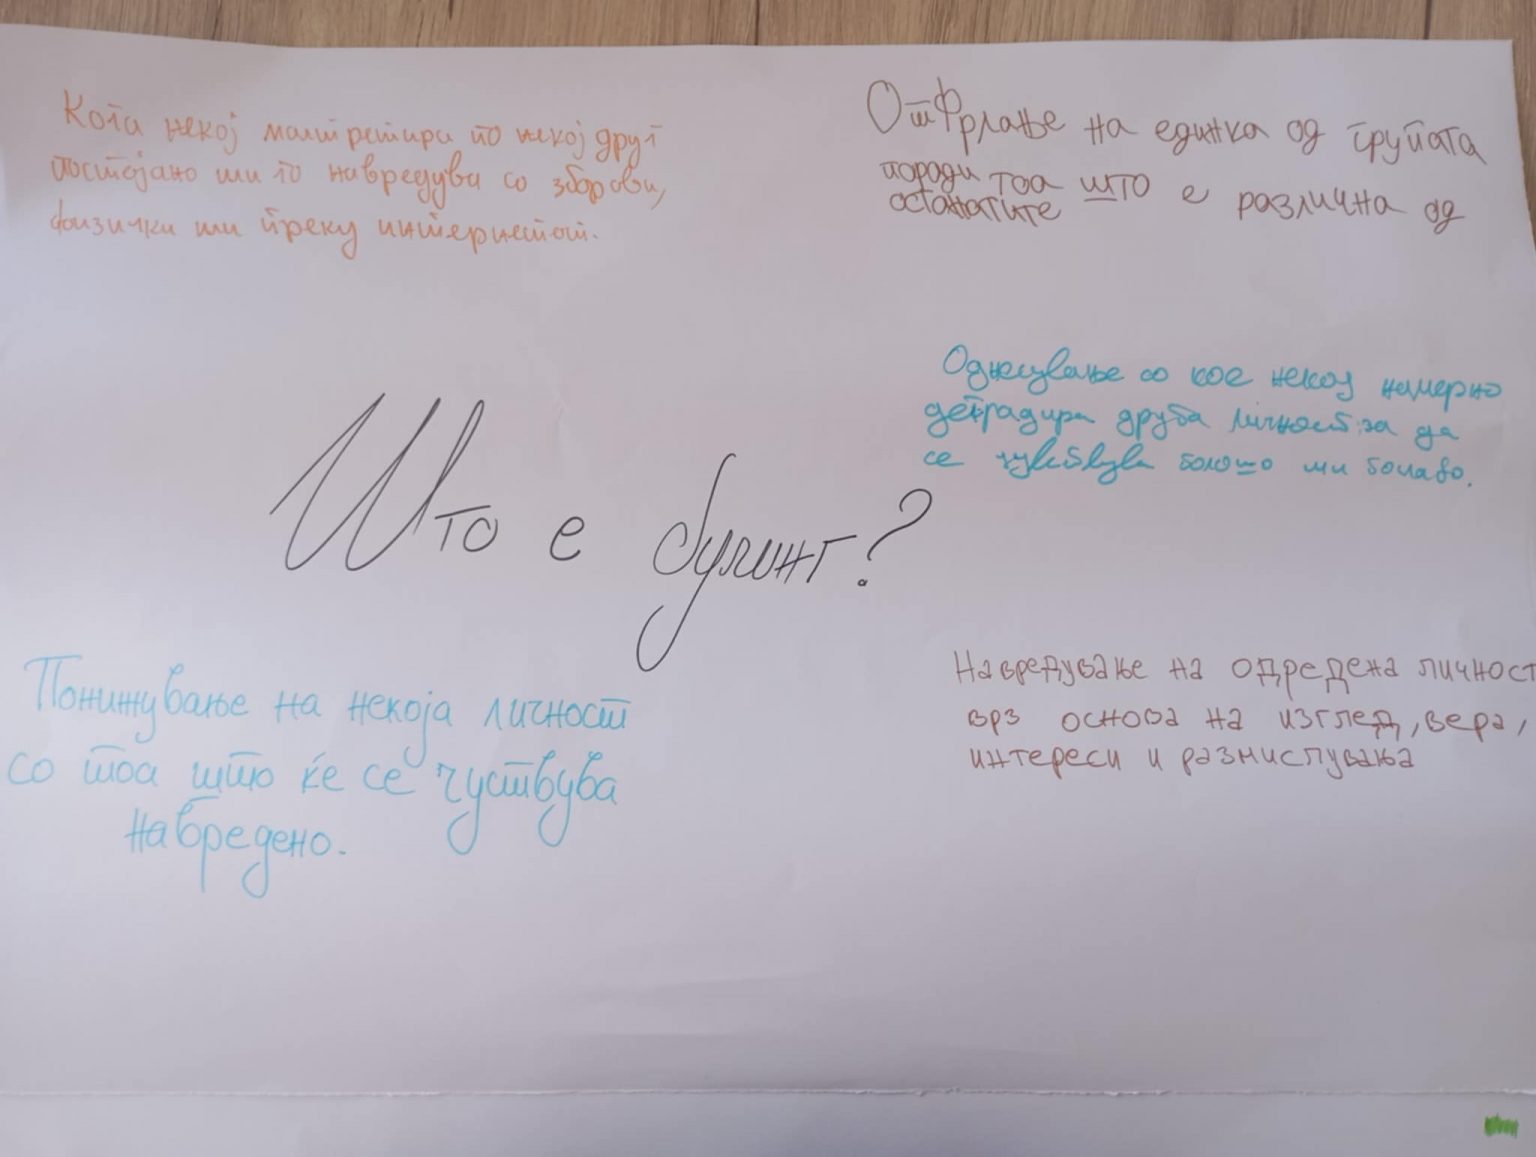 Кога некој малтретира по некој друг
постојано или го навредува со зборови,
физички или преку интернетот.
Отфрлање на единка од групата
поради тоа што е различна од
останатите
Однесување со кое некој намерно
деградира друга личност за да
се чувствува болошо или болаво.
Што е булинг?
Понижување на некоја личност
со тоа што ќе се чуствува
навредено.
Навредување на одредена личност
врз основа на изглед, вера,
интереси и размислувања